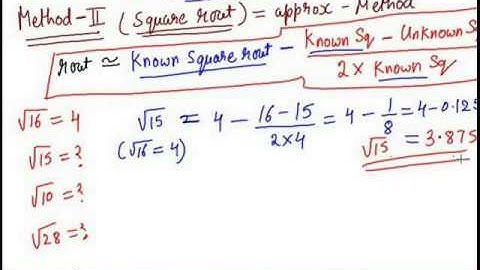 Method-II (Square rout) = approx - Method
rout ≃ Known Square rout - Known Sq - Unknown S / 2 × Known Sq
√16 = 4
√15 = 4 - (16 - 15) / (2×4) = 4 - 1/8 = 4 - 0.125
(√16 = 4)
√15 = 3.875
√15 = ?
√10 = ?
√28 = ?